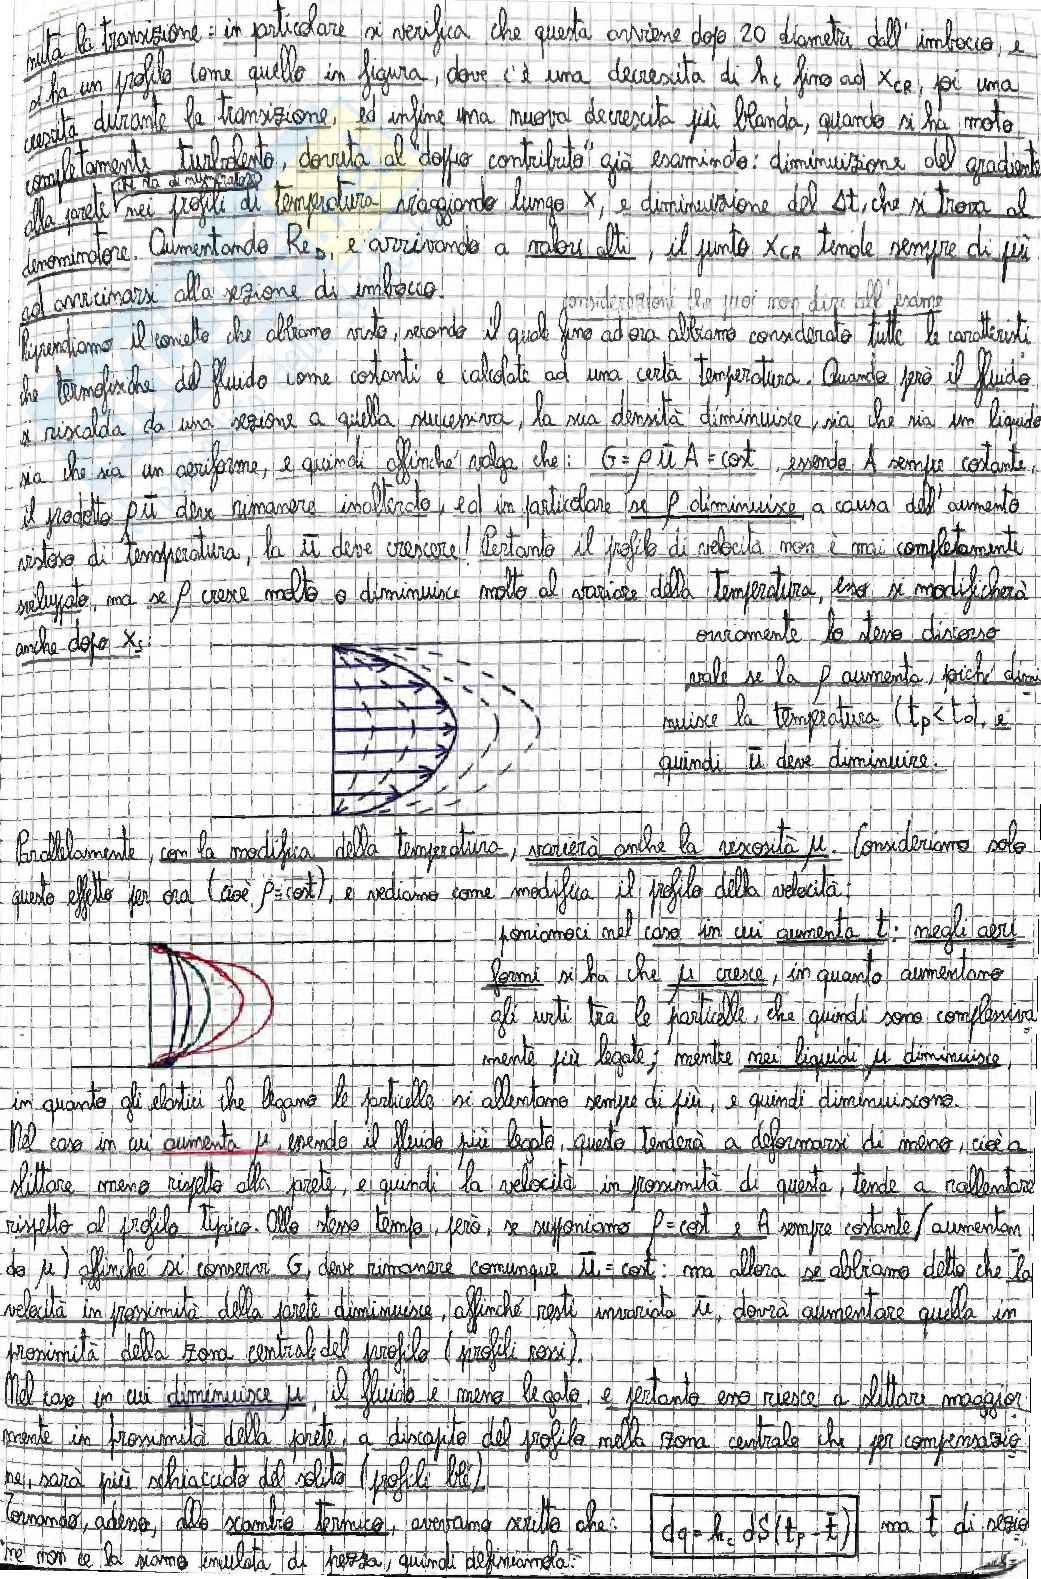 nuità la transizione: in particolare si verifica che questa avviene dopo 20 diametri dall'imbocco, e
si ha un profilo come quello in figura, dove c'è una decrescita di hc fino ad XCR, poi una
crescita durante la transizione, ed infine una nuova decrescita più blanda, quando si ha moto
completamente turbolento, dovuta al "doppio contributo" già esaminato: diminuizione del gradiente
(che sta al numeratore)
alla parete nei profili di temperatura viaggiando lungo x, e diminuizione del Δt, che si trova al
denominatore. Aumentando ReD, e arrivando a valori alti, il punto XCR tende sempre di più
ad avvicinarsi alla sezione di imbocco.
considerazioni che puoi non dire all'esame
Riprendiamo il concetto che abbiamo visto, secondo il quale fino ad ora abbiamo considerato tutte le caratteristi
che termofisiche del fluido come costanti e calcolate ad una certa temperatura. Quando però il fluido
si riscalda da una sezione a quella successiva, la sua densità diminuisce, sia che sia un liquido
sia che sia un aeriforme, e quindi affinché valga che: G = ρ ū A = cost, essendo A sempre costante,
il prodotto ρū deve rimanere inalterato, ed in particolare se ρ diminuisce a causa dell'aumento
vistoso di temperatura, la ū deve crescere! Pertanto il profilo di velocità non è mai completamente
sviluppato, ma se ρ cresce molto o diminuisce molto al variare della temperatura, esso si modificherà
anche dopo xs:
ovviamente lo stesso discorso
vale se la ρ aumenta, poiché dimi
nuisce la temperatura (tp < t0), e
quindi ū deve diminuire.
Parallelamente, con la modifica della temperatura, varierà anche la viscosità μ. Consideriamo solo
questo effetto per ora (cioè ρ=cost), e vediamo come modifica il profilo della velocità:
poniamoci nel caso in cui aumenta t: negli aeri
formi si ha che μ cresce, in quanto aumentano
gli urti tra le particelle, che quindi sono complessiva
mente più legate; mentre nei liquidi μ diminuisce,
in quanto gli elastici che legano le particelle si allentano sempre di più, e quindi diminuiscono.
Nel caso in cui aumenta μ, essendo il fluido più legato, questo tenderà a deformarsi di meno, cioè a
slittare meno rispetto alla parete, e quindi la velocità in prossimità di questa, tende a rallentare
rispetto al profilo tipico. Allo stesso tempo, però, se supponiamo ρ=cost e A sempre costante (aumentan
do μ) affinché si conservi G, deve rimanere comunque ū = cost: ma allora se abbiamo detto che la
velocità in prossimità della parete diminuisce, affinché resti invariata ū, dovrà aumentare quella in
prossimità della zona centrale del profilo (profili rossi).
Nel caso in cui diminuisce μ, il fluido è meno legato, e pertanto esso riesce a slittare maggior
mente in prossimità della parete, a discapito del profilo nella zona centrale che, per compensazio
ne, sarà più schiacciato del solito (profili blé)
Tornando, adesso, allo scambio termico, avevamo scritto che: dq = hc dS (tp - t̄) ma t̄ di sezio
ne non ce la siamo inventata di pezza, quindi definiamola: